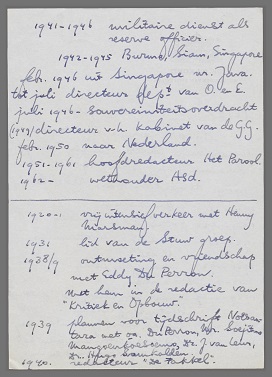 1941-1946 militaire dienst als
reserve officier.
1942-1945 Burma, Siam, Singapore
febr. 1946 uit Singapore nr. Java.
tot juli directeur dept van O. en E.
juli 1946 - souvereiniteitsoverdracht
(1949) directeur v.h. kabinet van de G.G.
febr. 1950 naar Nederland.
1951-1961 hoofdredacteur Het Parool.
1962- wethouder Asd.
1920-1 vrij verkeer met Henny
Marsman.
1931 lid van de Stuw groep.
1938/9 ontmoeting en vriendschap
met Eddy Du Perron.
Met hem in de redactie van
"Kritiek en Opbouw".
1939 plannen voor tijdschrift Noesan-
tara met oa. Du Perron, Mr.
Mangoenkoesoemo, Dr. J. van Leur,
Dr. Hugo Samkalden.
1940. redacteur "De Fakkel".